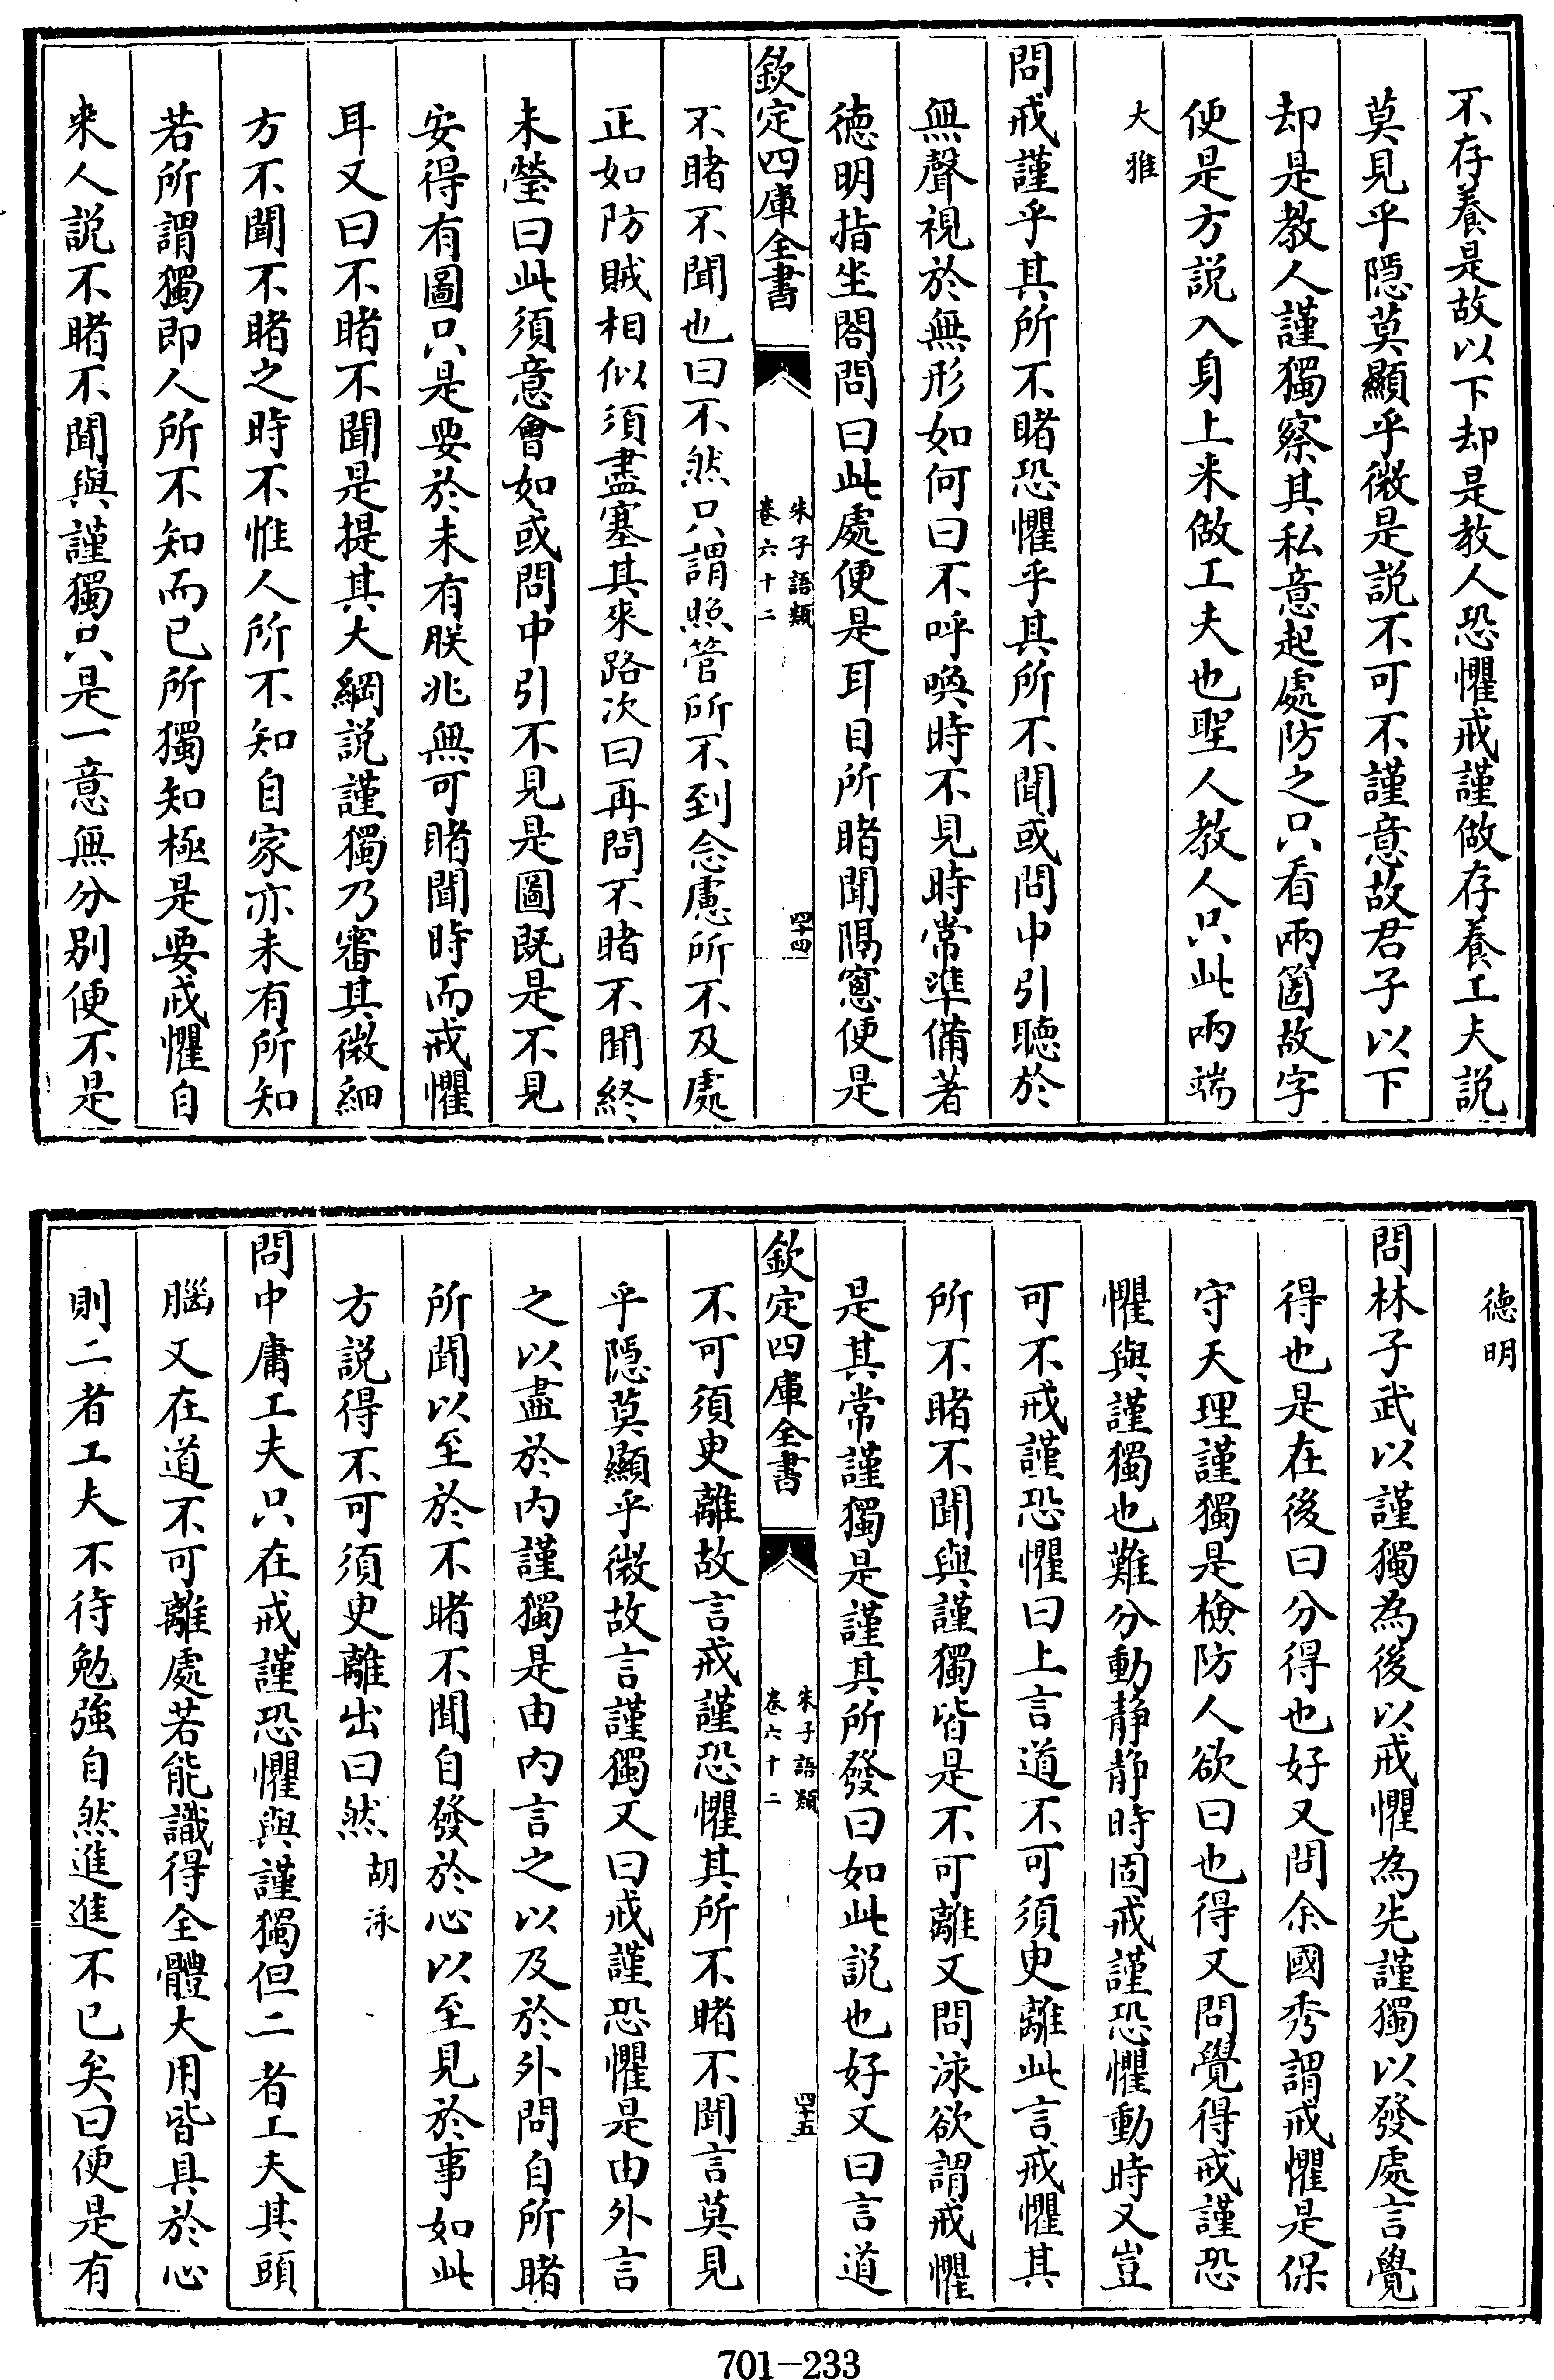 不存養是故以下却是教人恐懼戒謹做存養工夫說
莫見乎隱莫顯乎微是說不可不謹意故君子以下
却是教人謹獨察其私意起處防之只看兩箇故字
便是方說入身上来做工夫也聖人教人只此兩端
大雅
問戒謹乎其所不睹恐懼乎其所不聞或問中引聽於
無聲視於無形如何曰不呼喚時不見時常準備著
德明指坐閤問曰此處便是耳目所睹聞隔窻便是
欽定四庫全書
朱子語類
卷六十二
四十四
不睹不聞也曰不然只謂照管所不到念慮所不及處
正如防賊相似須盡塞其來路次曰再問不睹不聞終
未瑩曰此須意會如或問中引不見是圖既是不見
安得有圖只是要於未有朕兆無可睹聞時而戒懼
耳又曰不睹不聞是提其大綱說謹獨乃審其微細
方不聞不睹之時不惟人所不知自家亦未有所知
若所謂獨即人所不知而已所獨知極是要戒懼自
来人說不睹不聞與謹獨只是一意無分別便不是
德明
問林子武以謹獨為後以戒懼為先謹獨以發處言覺
得也是在後曰分得也好又問余國秀謂戒懼是保
守天理謹獨是檢防人欲曰也得又問覺得戒謹恐
懼與謹獨也難分動靜靜時固戒謹恐懼動時又豈
可不戒謹恐懼曰上言道不可須臾離此言戒懼其
所不睹不聞與謹獨皆是不可離又問泳欲謂戒懼
是其常謹獨是謹其所發曰如此說也好又曰言道
欽定四庫全書
朱子語類
卷六十二
四十五
不可須臾離故言戒謹恐懼其所不睹不聞言莫見
乎隱莫顯乎微故言謹獨又曰戒謹恐懼是由外言
之以盡於內謹獨是由內言之以及於外問自所睹
所聞以至於不睹不聞自發於心以至見於事如此
方說得不可須臾離出曰然胡泳
問中庸工夫只在戒謹恐懼與謹獨但二者工夫其頭
腦又在道不可離處若能識得全體大用皆具於心
則二者工夫不待勉強自然進進不已矣曰便是有
701-233